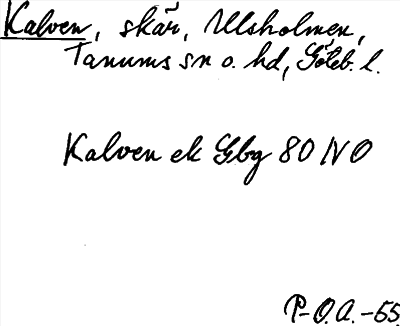 Kalven, skär, Ulsholmen,
Tanums sn o. hd, Göteb. l.
Kalven ek Gbg 80 NO
P-O.A.-55